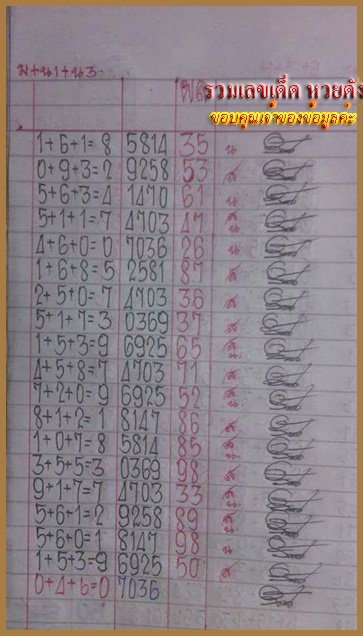 ม+น1+น3
รวมเลขเด็ด หวยดัง
ขอบคุณเจ้าของข้อมูลค่ะ
1+6+1=8 5814 35 น
0+9+3=2 9258 53 ส
5+6+3=4 1470 61 น
5+1+1=7 4703 47
4+6+0=0 7036 26 น
1+6+8=5 2581 87 ส
2+5+0=7 4703 36 ส
5+1+7=3 0369 37
1+5+3=9 6925 65
4+5+8=7 4703 71 ส
7+2+0=9 6925 52
8+1+2=1 8147 86 ส
1+0+7=8 5814 85
3+5+5=3 0369 98 ส
9+1+7=7 4703 33
5+6+1=2 9258 89
5+6+0=1 8147 98 น
1+5+3=9 6925 50 ส
0+4+6=0 7036